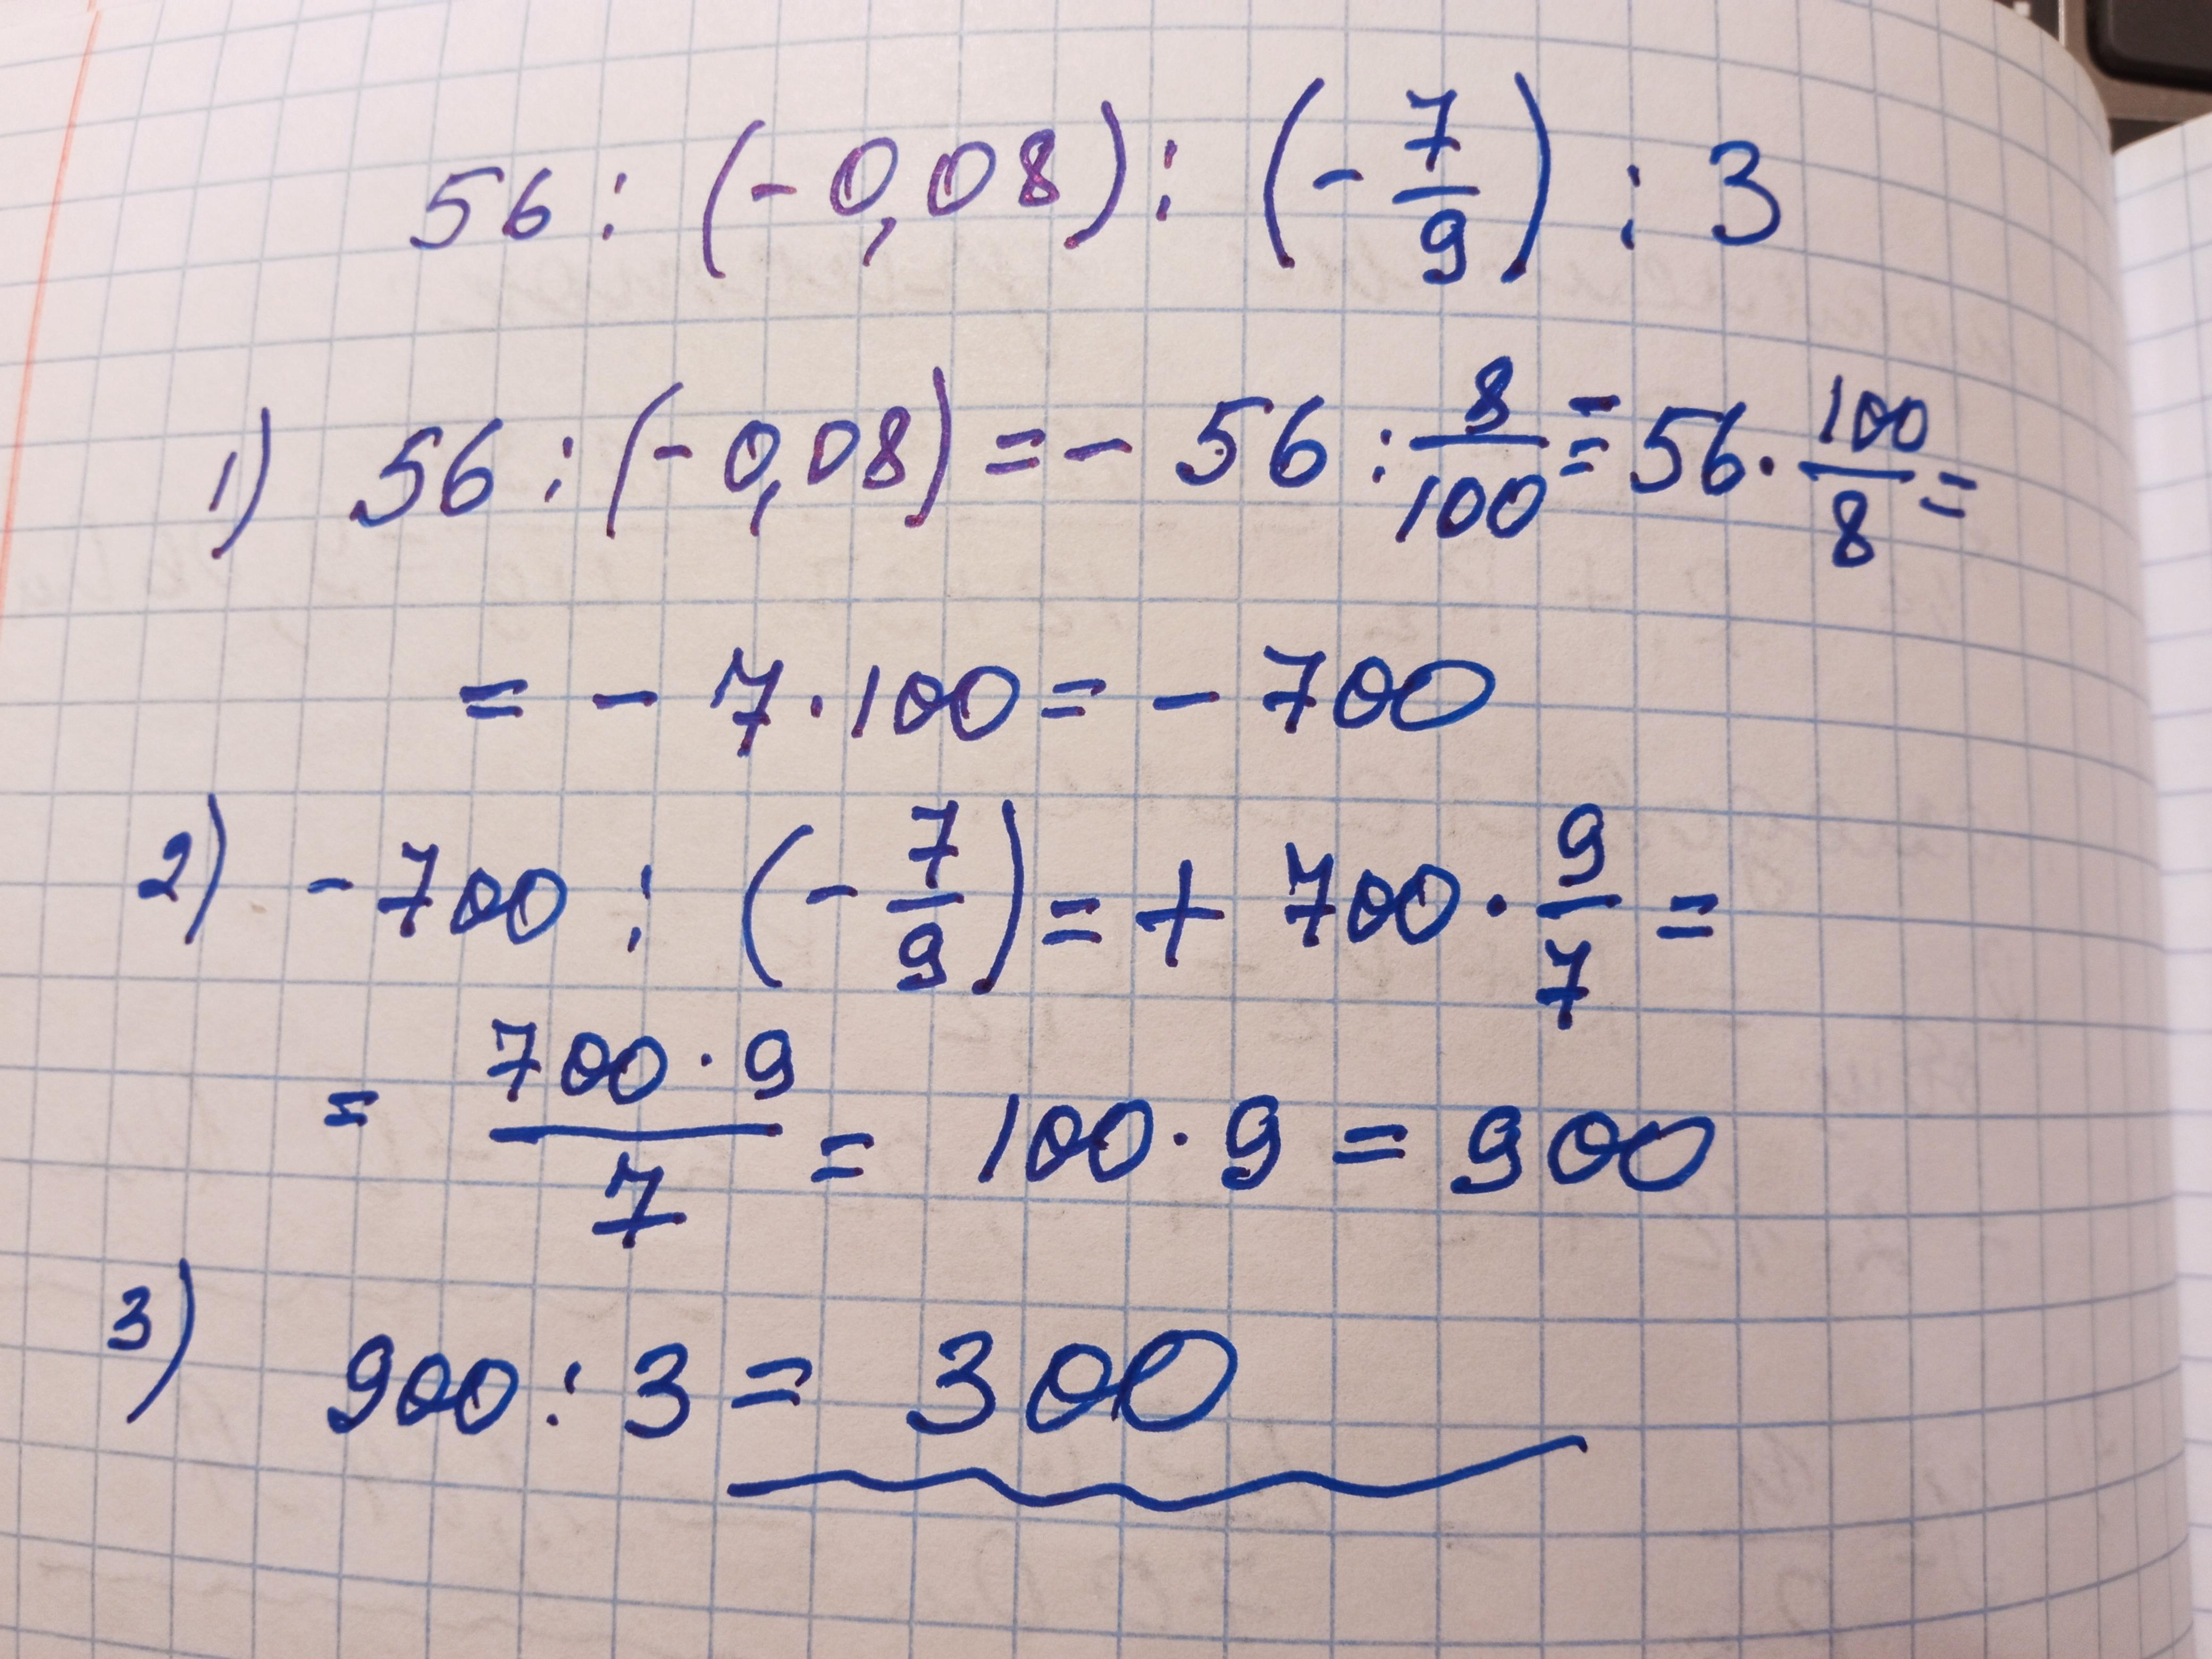 56 : (-0,08) : (-7/9) : 3
1) 56 : (-0,08) = - 56 : 8/100 = 56 · 100/8 =
= - 7 · 100 = - 700
2) -700 : (-7/9) = + 700 · 9/7 =
= 700 · 9/7 = 100 · 9 = 900
3) 900 : 3 = 300